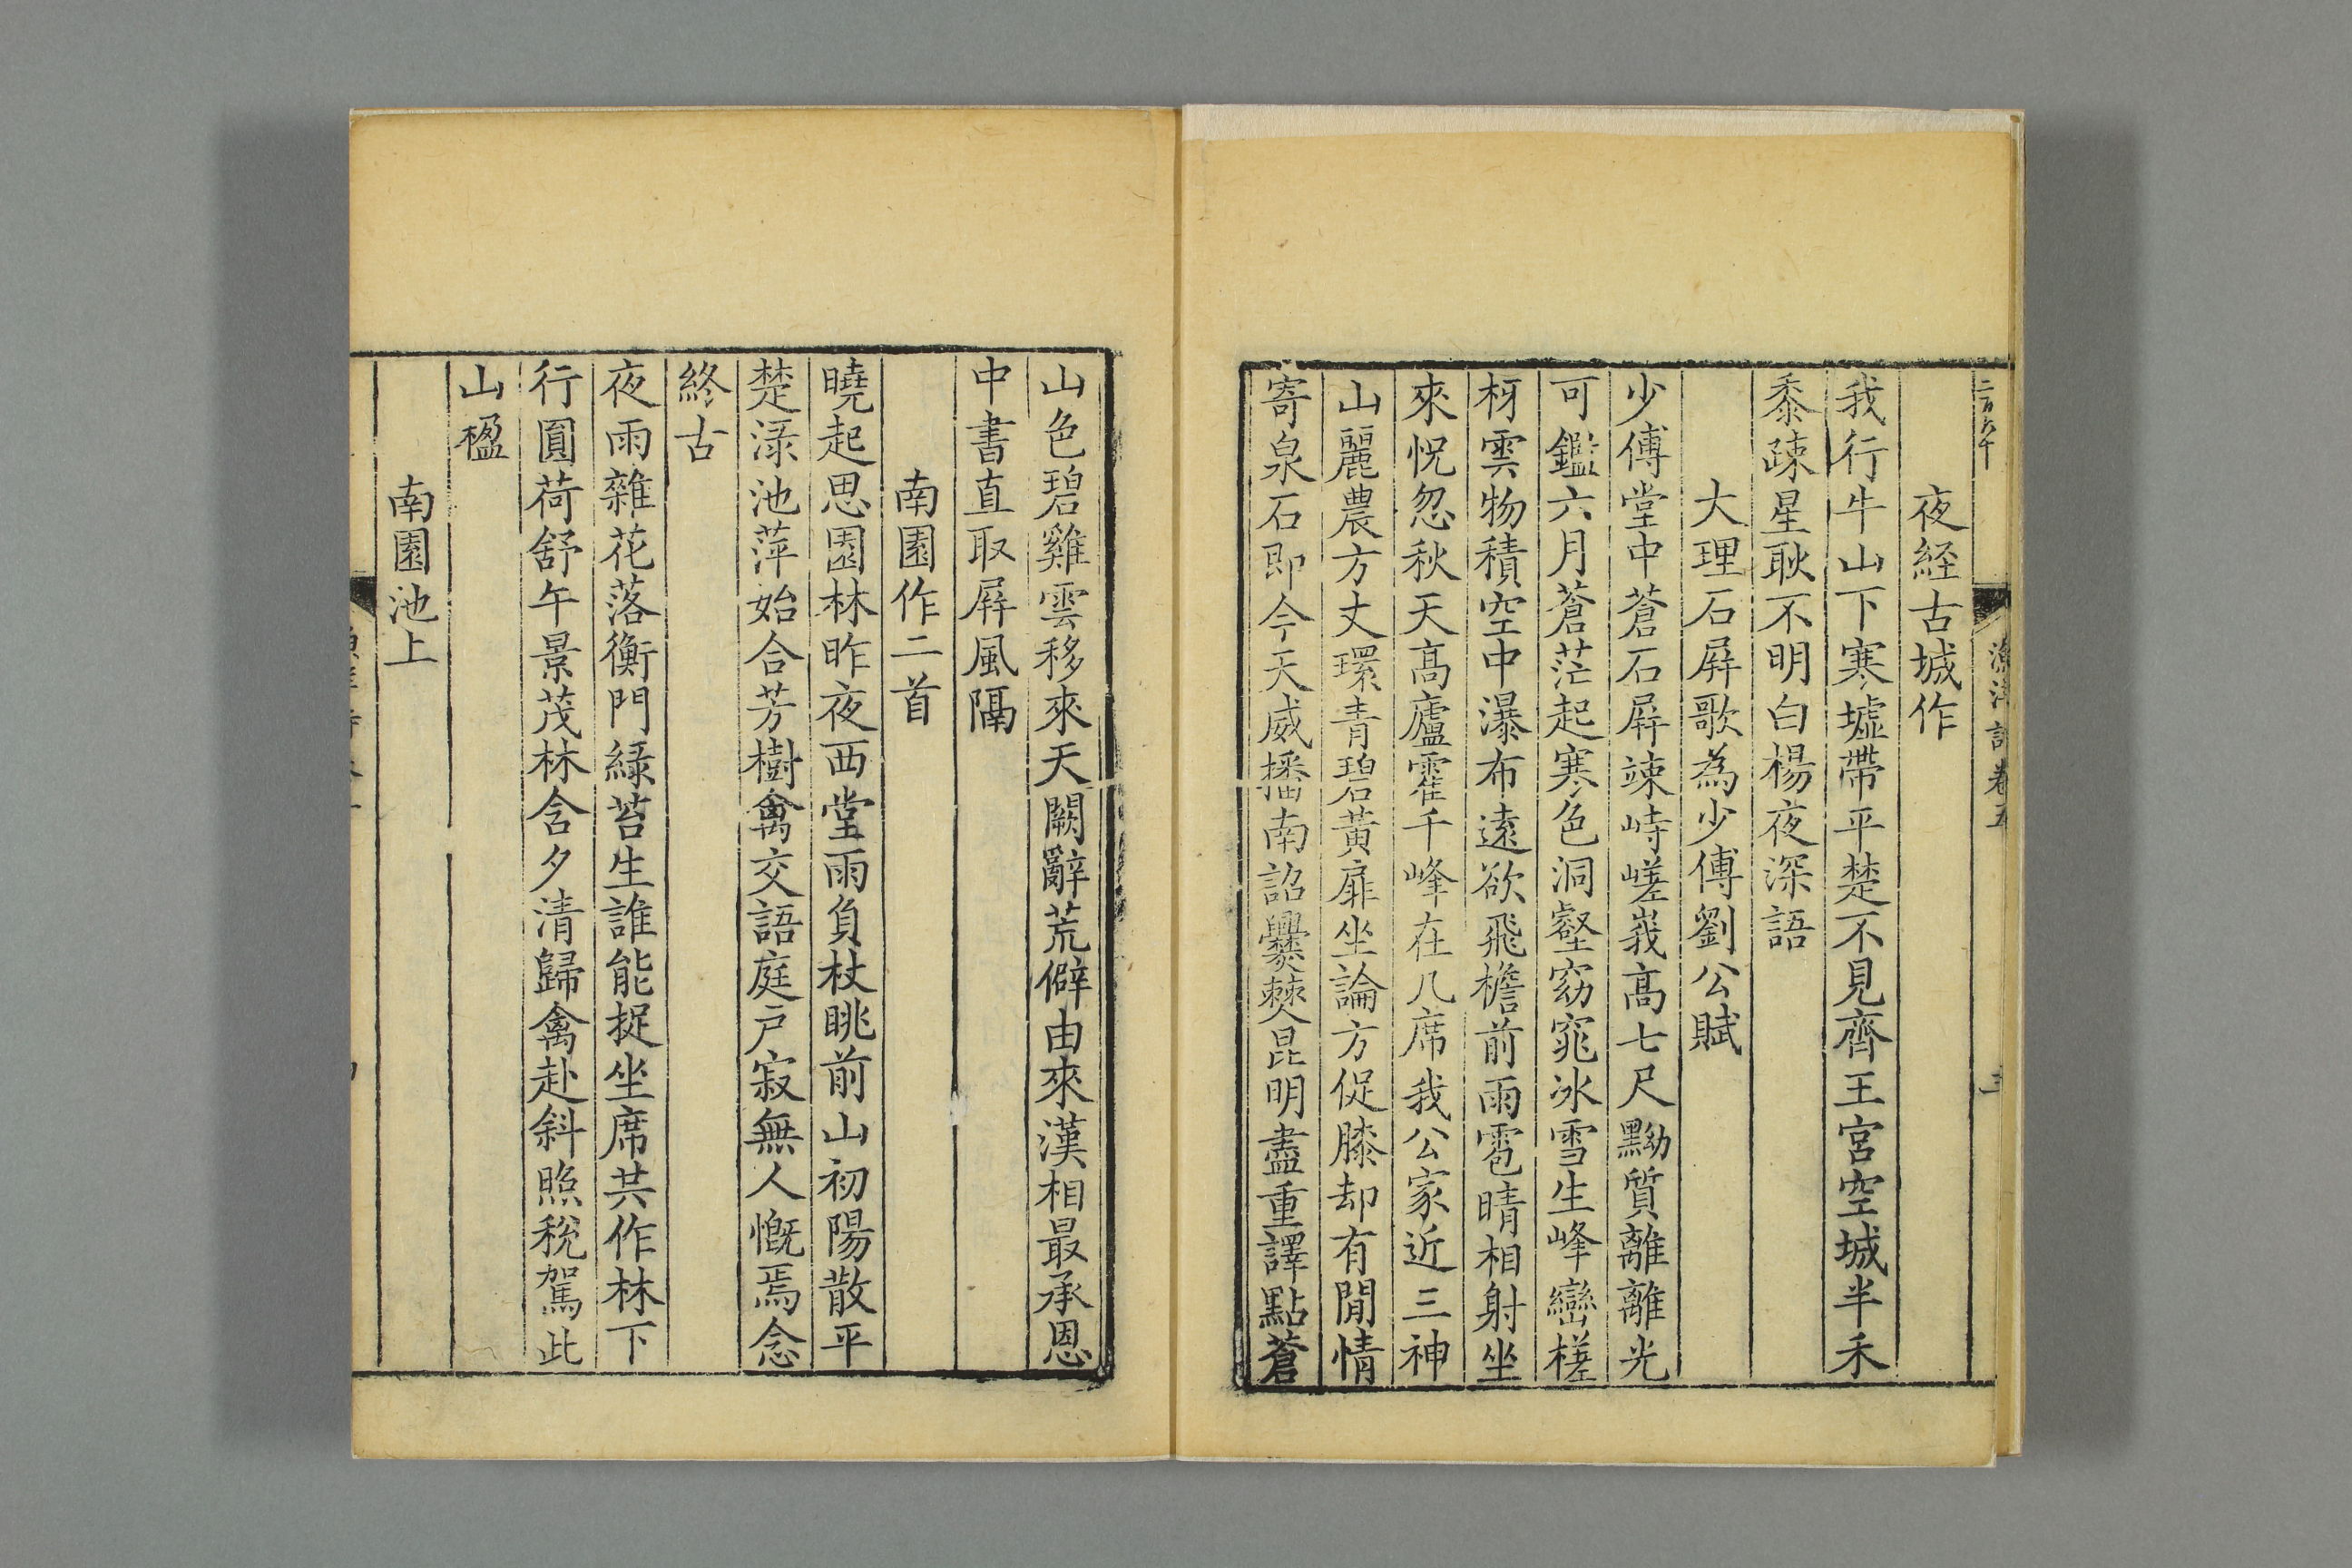 夜経古城作
我行牛山下寒墟帶平楚不見齊王宮空城半禾
黍疎星耿不明白楊夜深語
大理石屏歌為少傅劉公賦
少傅堂中蒼石屏竦峙嵯峩高七尺黝質離離光
可鑑六月蒼茫起寒色洞壑窈窕冰雪生峰巒槎
枒雲物積空中瀑布遠欲飛檐前雨雹晴相射坐
來怳忽秋天高廬霍千峰在几席我公家近三神
山麗農方丈環青碧黃扉坐論方促膝却有閒情
寄泉石即今天威播南詔爨僰昆明盡重譯點蒼
山色碧雞雲移來天闕辭荒僻由來漢相最承恩
中書直取屏風隔
南園作二首
曉起思園林昨夜西堂雨負杖眺前山初陽散平
楚淥池萍始合芳樹禽交語庭戶寂無人慨焉念
終古
夜雨雜花落衡門綠苔生誰能捉坐席共作林下
行圓荷舒午景茂林含夕清歸禽赴斜照稅駕此
山楹
南園池上